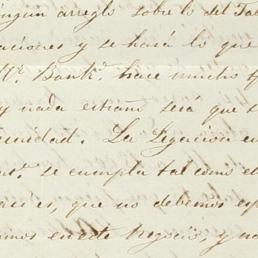 ningun arreglo sobre lo del Ta
aciones y se hará lo que
Mr. Bank. hace mucho
y nada estraño será que
unidad. La Legacion en
se cumpla tal como el
es, que no debemos es
mos en este negocio, y no